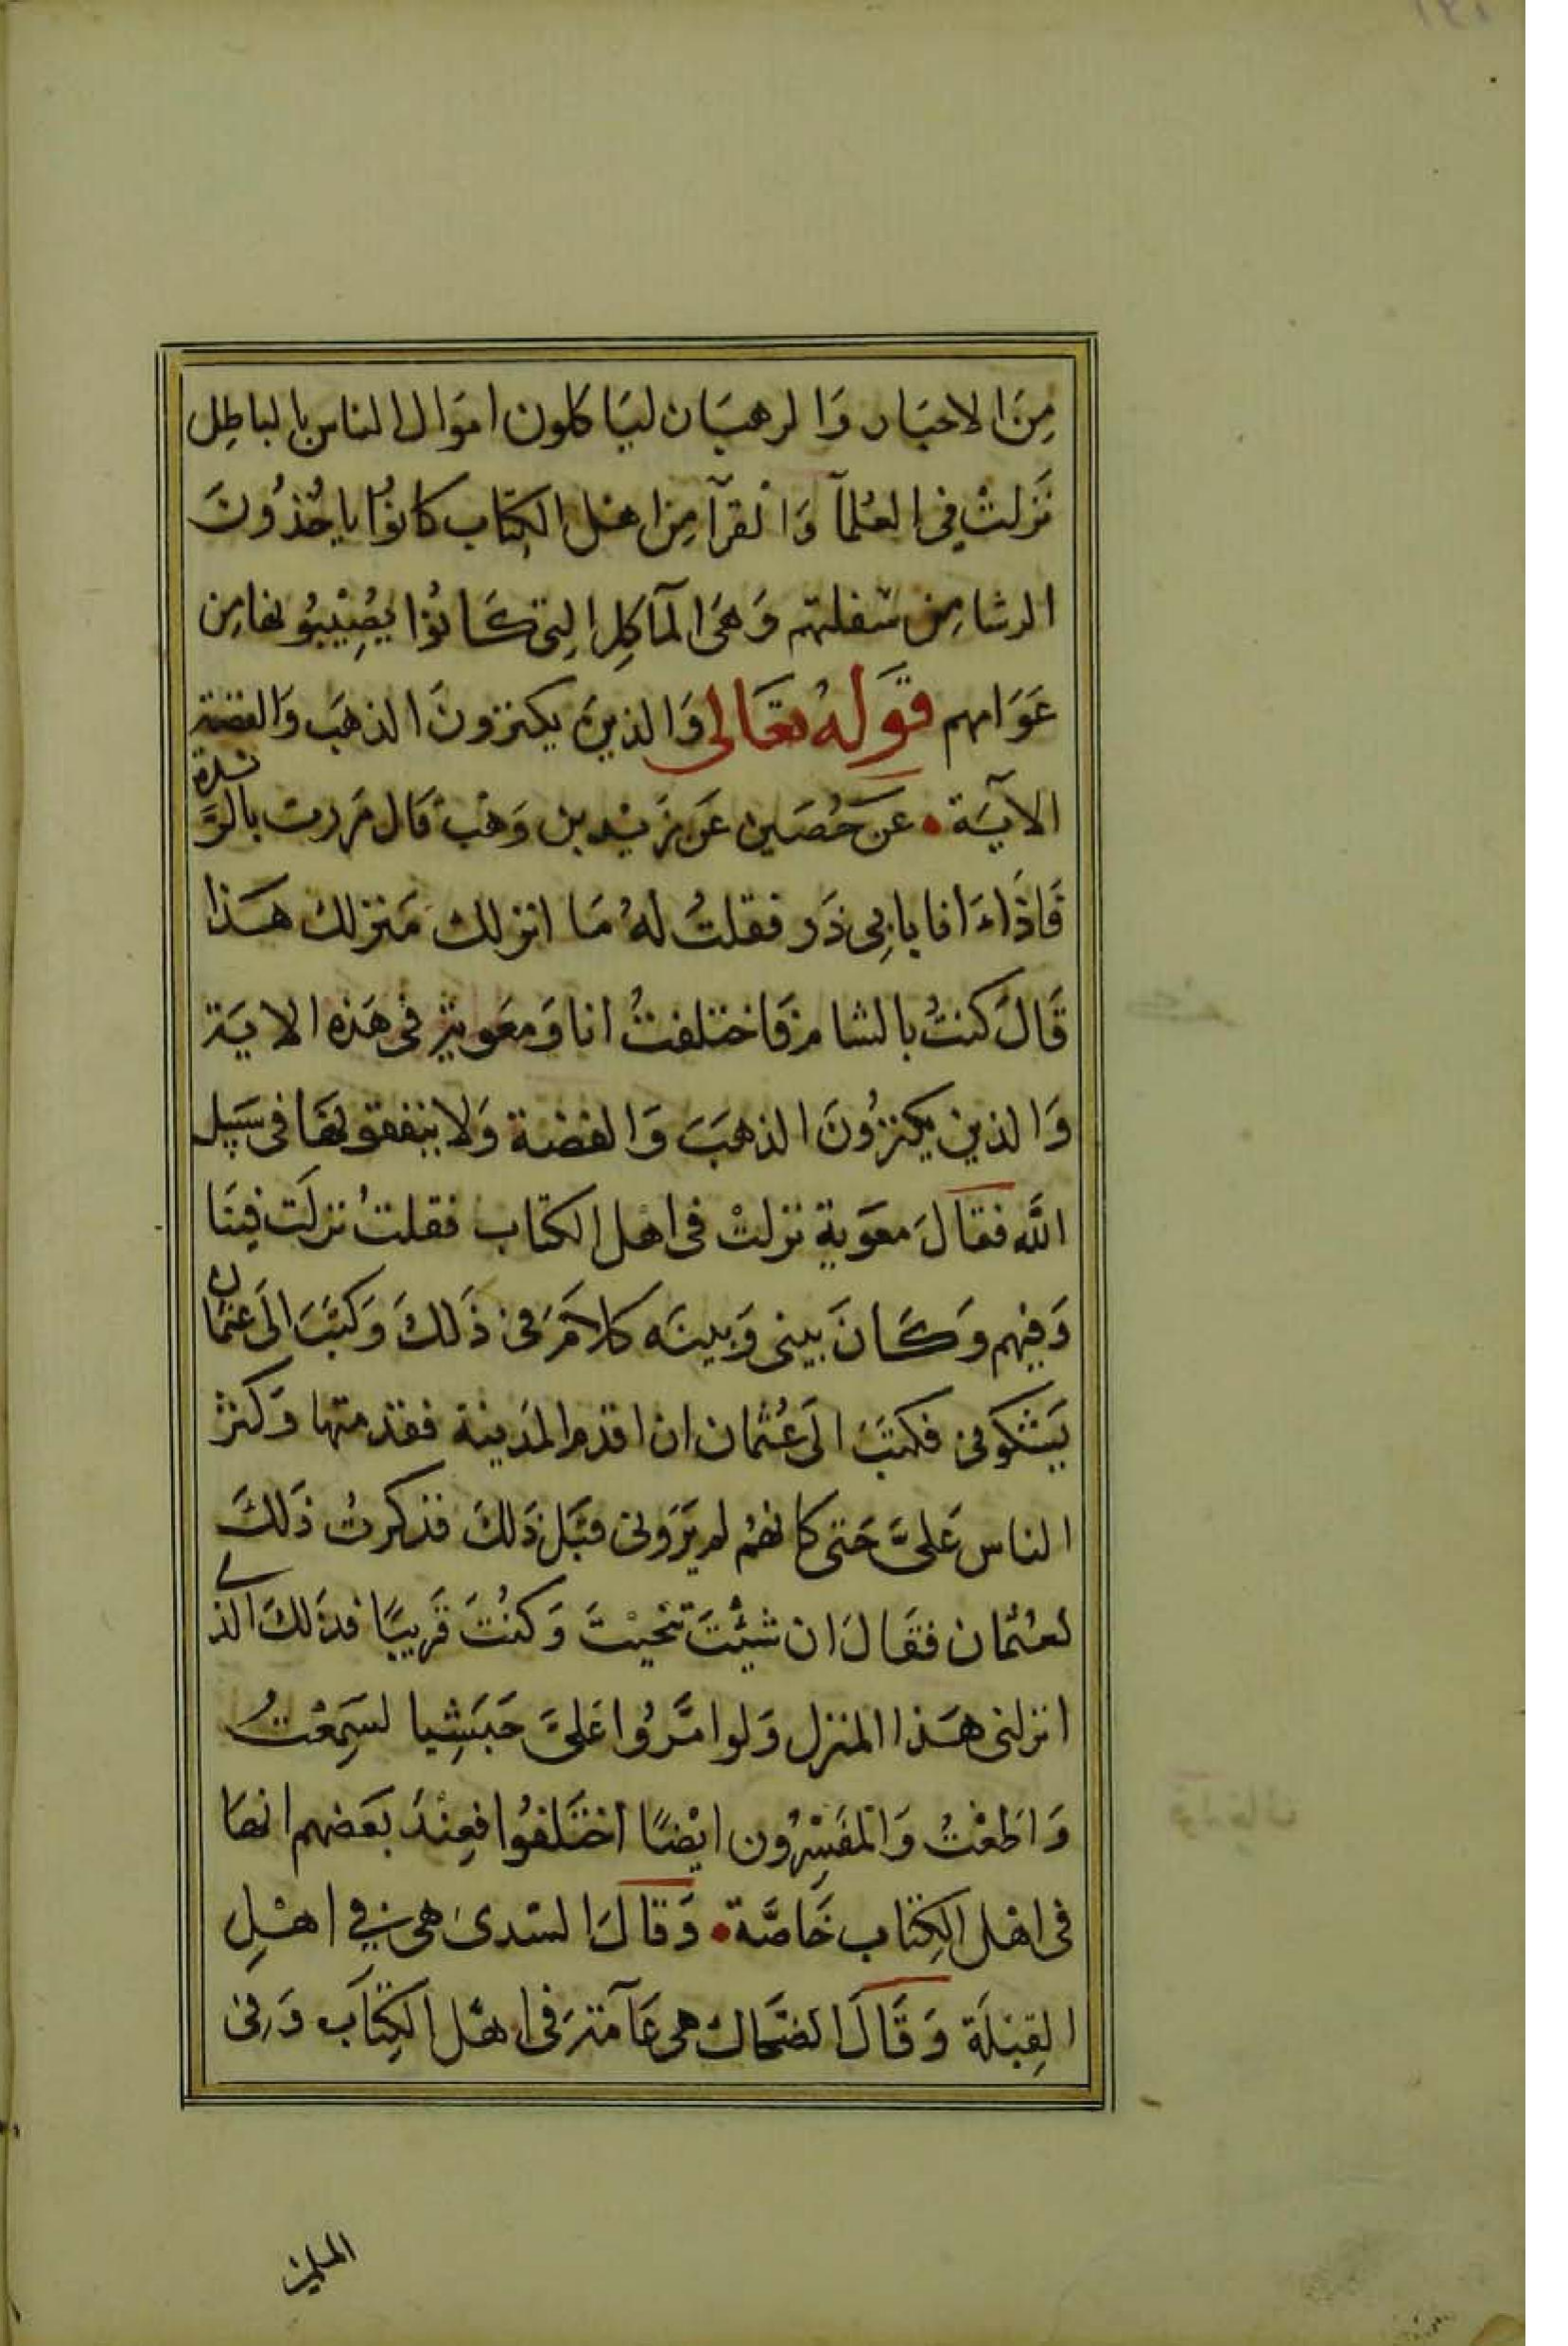 مِنَ الاحبَار وَالرهبَان ليَاكلون اموَال الناس بالباطِل
نَزَلتْ فِي العُلمآ وَالقرآ مِن اهْل الكِتاب كانوُا ياخُذوُنَ
الرشا مِن سَفلتهم وَهيَ المآكِل الِتى كَانوُا يُصِيْبُونها مِن
عَوَامهم قَولهُ تعَالى وَالذينَ يكنزونَ الذهبَ وَالفضة
الآيَة • عَن حُصَين عَن زَيْد بن وَهْب قال مَررت بالرَّبذة
فَاذَاءَ انا بابِى ذَر فقلتُ لهُ مَا انزلك مَنزلك هَذا
قَالَ كنتُ بالشام فَاختلفتُ انا وَمعَوية فى هَذه الايَة
وَالذين يكنزوُنَ الذهبَ وَالفضة وَلا ينفقونَهَا فى سَبيل
اللَّه فقالَ معَوية نزلتْ فى اهْل الكتاب فقلتُ نزلَت فينَا
وَفيهم وَكَانَ بيني وَبينَه كلامَ في ذَلكَ وَكتبَ الىَ عثمان
يَشكوني فكتبَ الىَ عُثمان ان اقدم المدَينة فقدمتها وَكثر
الناس عَلىَّ حَتى كانهُم لم يَرَوني قبَل ذَلكَ فذكرتُ ذَلكَ
لعُثمان فقالَ ان شئتَ تنحيْتَ وَكنُتَ قَريبًا فذلكَ الذى
انزلنى هَذا المنزل وَلو امَّروُا عَلىَّ حَبَشِيا لسَمِعْتُ
وَاطَعْتُ وَالمْفَسِّرُون ايْضًا اختَلفوُا فعِنْدَ بَعضهم انهَا
فى اهْل الكِتاب خَاصَّة • وَقالَ السّدىَ هى فِي اهْلِ
القِبْلَة وَقَالَ الضحَّاك هى عَآمّة فى اهْل الكِتاَب وَفى
المسلمين